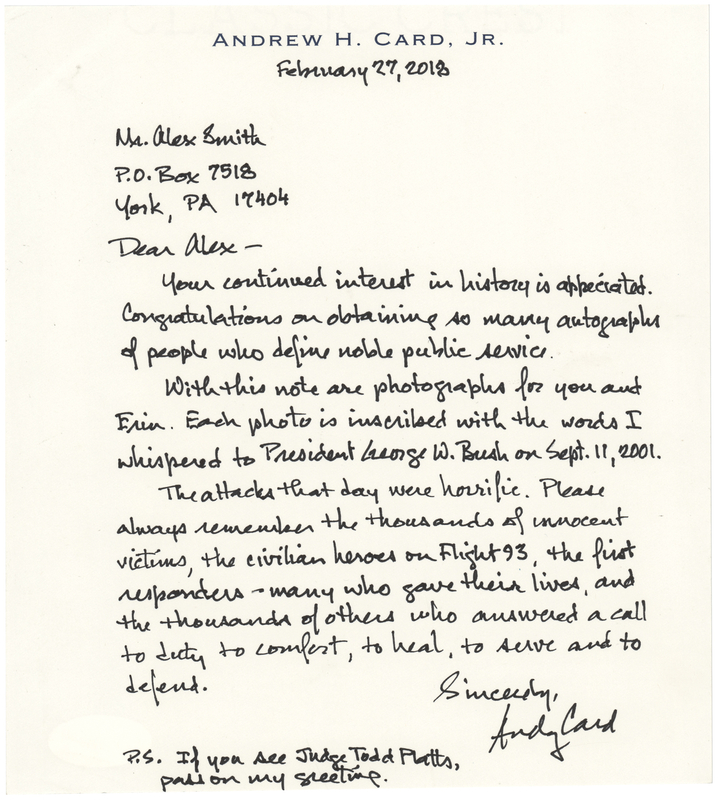 ANDREW H. CARD, JR.
February 27, 2018
Mr. Alex Smith
P.O. Box 7518
York, PA 17404
Dear Alex —
Your continued interest in history is appreciated.
Congratulations on obtaining so many autographs
of people who define noble public service.
With this note are photographs for you and
Erin. Each photo is inscribed with the words I
whispered to President George W. Bush on Sept. 11, 2001.
The attacks that day were horrific. Please
always remember the thousands of innocent
victims, the civilian heroes on Flight 93, the first
responders – many who gave their lives, and
the thousands of others who answered a call
to duty to comfort, to heal, to serve and to
defend.
Sincerely,
Andy Card
P.S. If you see Judge Todd Platts,
pass on my greeting.